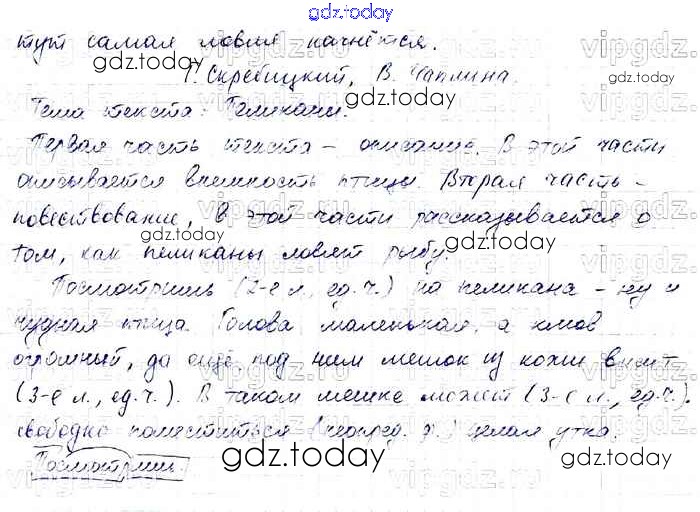 gdz.today
тут самая ловля начнётся.
Г. Скребицкий, В. Чаплина.
Тема текста: Пеликаны.
Первая часть текста – описание. В этой части
описывается внешность птицы. Вторая часть –
повествование, в этой части рассказывается о
том, как пеликаны ловят рыбу.
Посмотришь (2-е л., ед.ч.) на пеликана – ну и
чудная птица. Голова маленькая, а клюв
огромный, да ещё под ним мешок из кожи висит
(3-е л., ед.ч.). В таком мешке может (3-е л., ед.ч.)
свободно поместиться (неопред. ф.) целая утка.
Посмотришь.